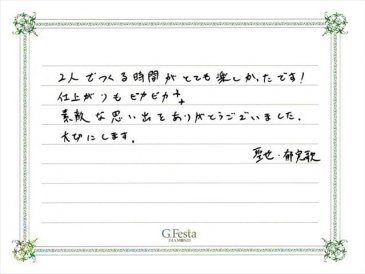 2人でつくる時間がとても楽しかったです!
仕上がりもピカピカ
素敵な思い出をありがとうございました。
大切にします。
聖也・郁完歌
G.Festa
DIAMOND